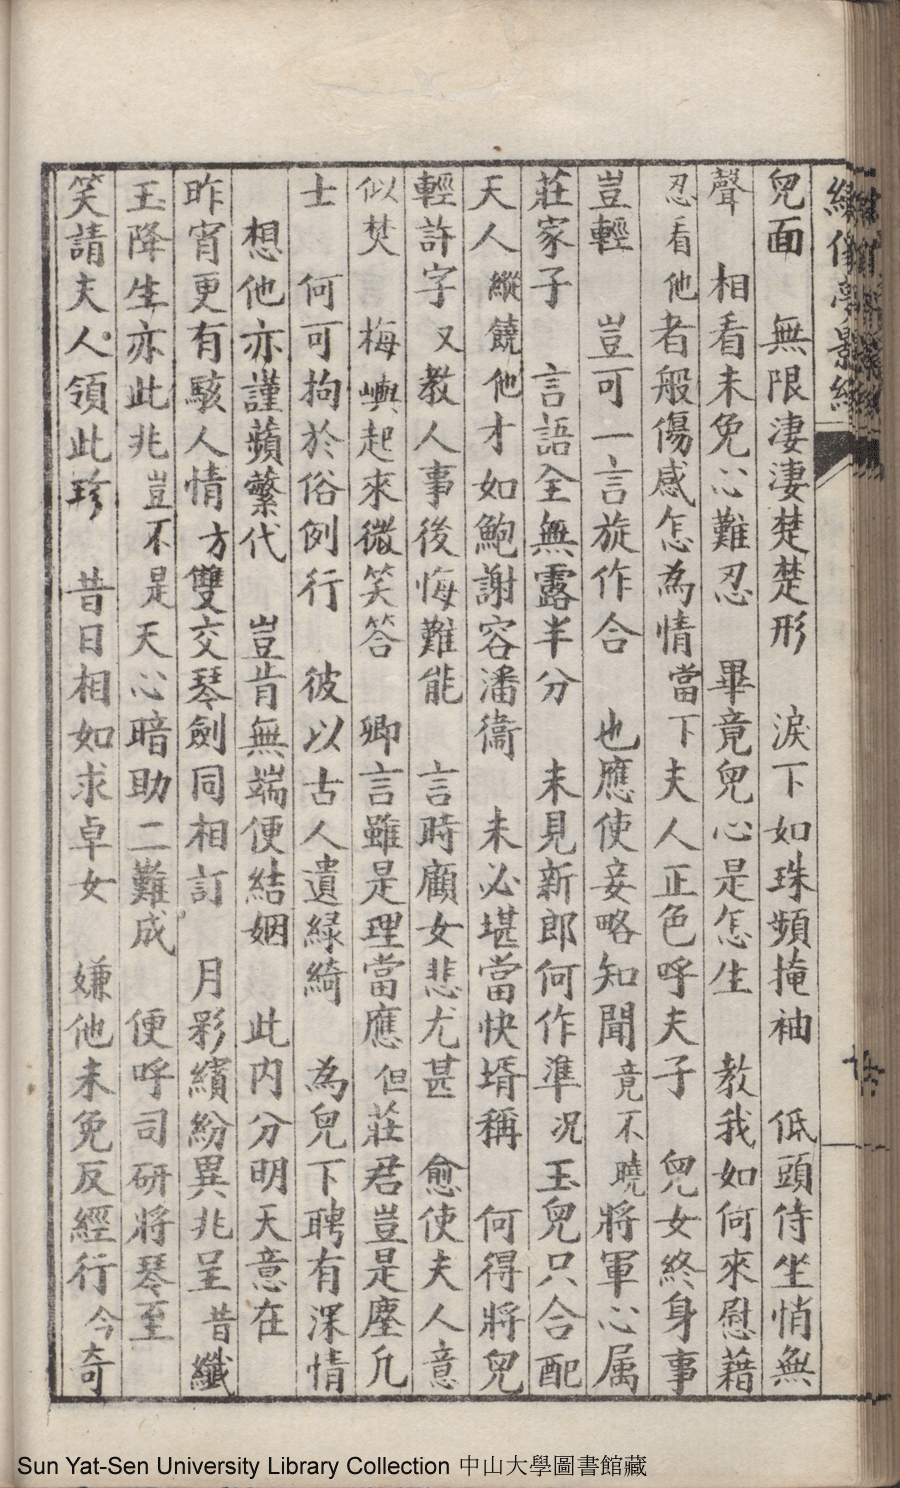 兒面　無限淒淒楚楚形　淚下如珠頻掩袖　低頭侍坐悄無
聲　相看未免心難忍　畢竟兒心是怎生　教我如何來慰藉
忍看他者般傷感怎為情當下夫人正色呼夫子　兒女終身事
豈輕　豈可一言旋作合　也應使妾略知聞竟不曉將軍心属
莊家子　言語全無露半分　未見新郎何作準况玉兒只合配
天人縱饒他才如鮑謝容潘衞　未必堪當快壻稱　何得將兒
輕許字又教人事後悔難能　言時顧女悲尤甚　愈使夫人意
似焚　梅嶼起來微笑答　卿言雖是理當應但莊君豈是塵凢
士　何可拘於俗例行　彼以古人遺綠綺　為兒下聘有深情
想他亦謹蘋蘩代　豈肯無端便結姻　此内分明天意在
昨宵更有駭人情方雙交琴劍同相訂　月影繽紛異兆呈昔纖
玉降生亦此兆豈不是天心暗助二難成　便呼司研將琴至
笑請夫人領此珍　昔日相如求卓女　嫌他未免反經行今奇
Sun Yat-Sen University Library Collection 中山大學圖書館藏